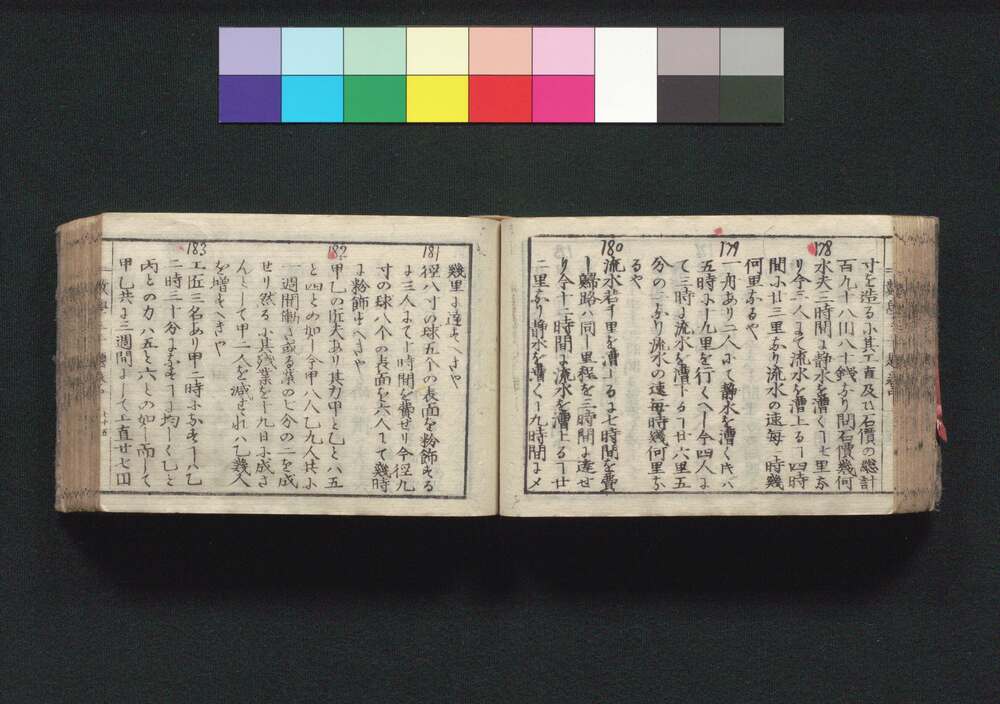 寸を造る小其工直及ヒ石價の總計
百九十八川八十銭なり問石價幾何
178
水夫二時間に静水を漕く丁七里な
り今三人にて流水を漕上る丁四時
間に廿三里なり流水の速毎一時幾
何里なるや
179
一舟あり二人にて静水を漕く時ハ
五時に十九里を行くへし今四人に
て三時に流水を漕下る丁廿六里五
分の二なり流水の速毎時幾何里な
るや
180
流水若干里を漕上るに七時間を費
し歸路ハ同し里程を三時間に達せ
り今十二時間に流水を漕上る丁廿
二里なり静水を漕く丁九時間にメ
幾里に達すへきや
181
徑八寸の球五个の表面を粉飾する
に三人にて一時間を費せり今徑九
寸の球八个の表面を六人にて幾時
に粉飾すへきや
182
甲乙の匠夫あり其力甲と乙とハ五
と四との如し今甲八人乙九人共に
一週間働き或る業の七分の二を成
せり然る小其残業を十九日小成さ
んとして甲二人を減せれハ乙幾人
を増すへきや
183
工匠三名あり甲二時小なす丁ハ乙
二時三十分になす丁に均しく乙と
丙との力ハ五と六との如し而して
甲乙共に三週間にして工直廿七囗
數學